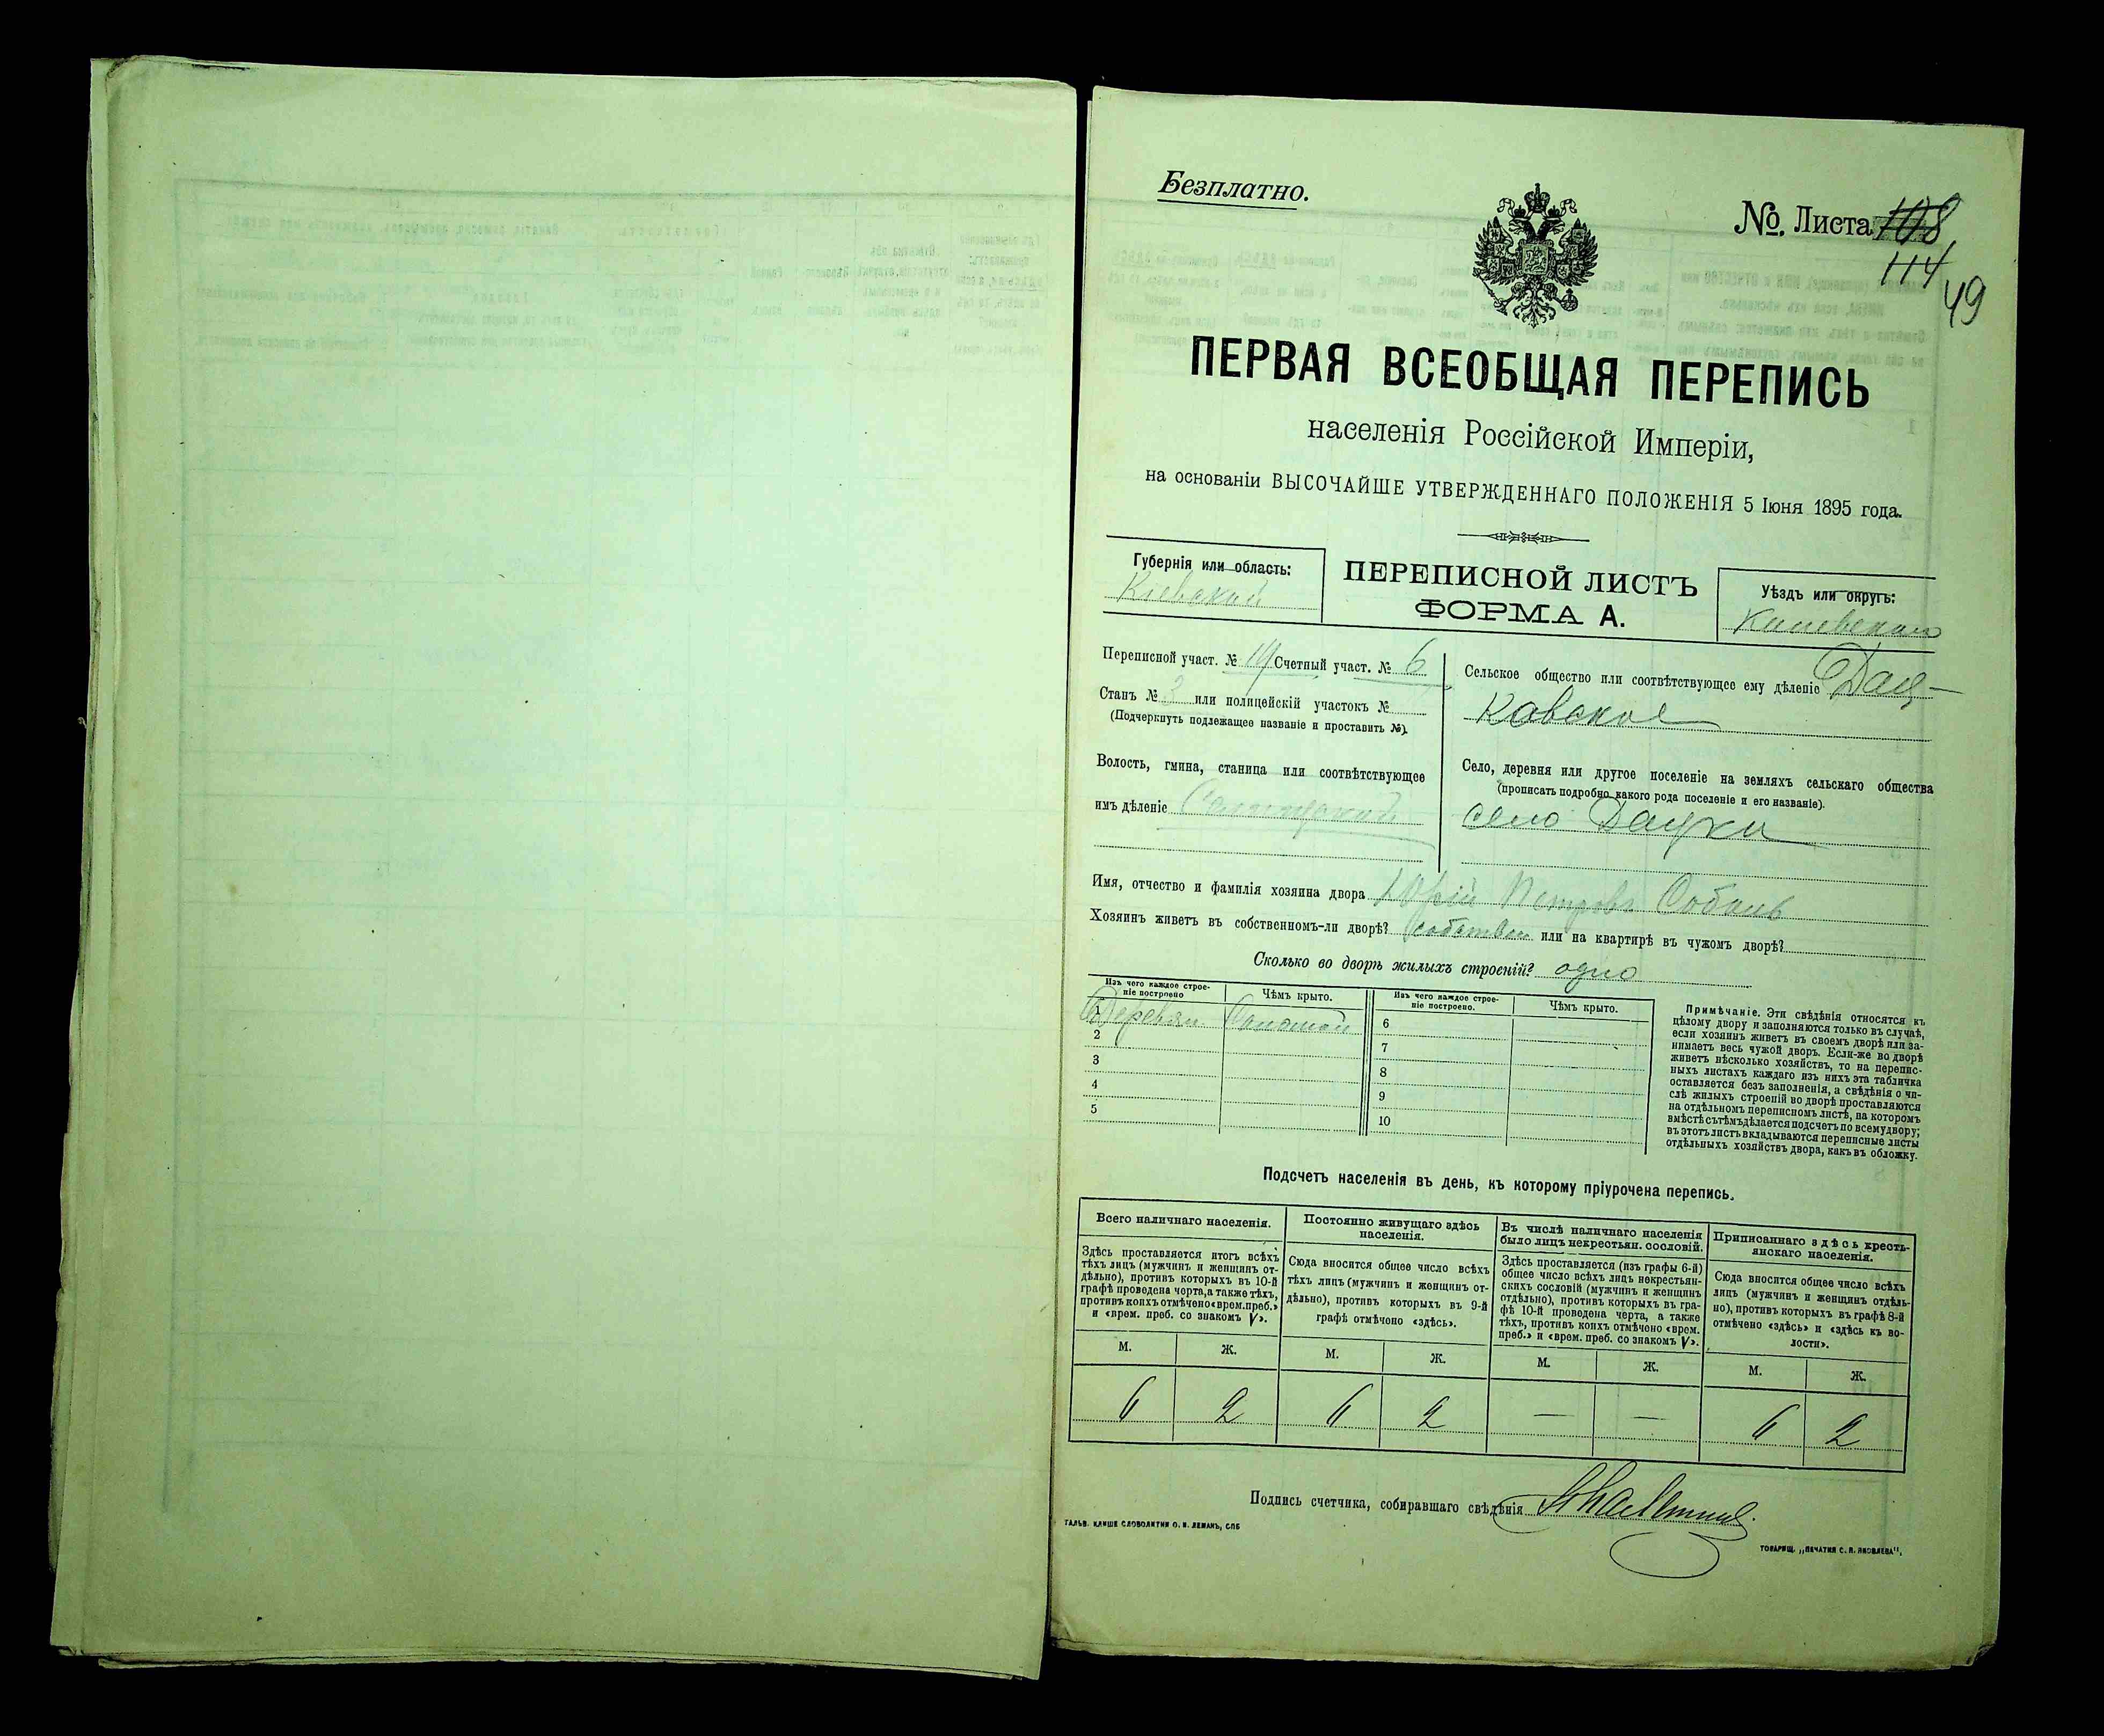 Безплатно.
№. Листа 108,
114
49
ПЕРВАЯ ВСЕОБЩАЯ ПЕРЕПИСЬ
населенія Россійской Имперіи,
на основаніи ВЫСОЧАЙШЕ УТВЕРЖДЕННАГО ПОЛОЖЕНІЯ 5 Іюня 1895 года.
Губернія или область:
Кіевской
ПЕРЕПИСНОЙ ЛИСТЪ
ФОРМА А.
Уѣздъ или округъ:
Переписной участ. № 19 Счетный участ. № 6
Станъ № 3 или полицейскій участокъ №
(Подчеркнуть подлежащее названіе и проставить №).
Волость, гмина, станица или соотвѣтствующее
имъ дѣленіе
Сельское общество или соотвѣтствующее ему дѣленіе Дац-
ковское
Село, деревня или другое поселеніе на земляхъ сельскаго общества
(прописать подробно, какого рода поселеніе и его названіе).
село Дацки
Имя, отчество и фамилія хозяина двора Юрій Петровъ
Хозяинъ живетъ въ собственномъ-ли дворѣ? собствен или на квартирѣ въ чужомъ дворѣ?
Сколько во дворѣ жилыхъ строеній? одно
Изъ чего каждое строе-
ніе построено
Чѣмъ крыто.
Изъ чего каждое строе-
ніе построено.
Чѣмъ крыто.
1 Деревян Соломой
2
3
4
5
6
7
8
9
10
Примѣчаніе. Эти свѣдѣнія относятся къ
цѣлому двору и заполняются только въ случаѣ,
если хозяинъ живетъ въ своемъ дворѣ или за-
нимаетъ весь чужой дворъ. Если-же во дворѣ
живетъ нѣсколько хозяйствъ, то на перепис-
ныхъ листахъ каждаго изъ нихъ эта табличка
оставляется безъ заполненія, а свѣдѣнія о чи-
слѣ жилыхъ строеній во дворѣ проставляются
на отдѣльномъ переписномъ листѣ, на которомъ
вмѣстѣ съ тѣмъ дѣлается подсчетъ по всему двору;
въ этотъ листъ вкладываются переписные листы
отдѣльныхъ хозяйствъ двора, какъ въ обложку.
Подсчетъ населенія въ день, къ которому пріурочена перепись.
Всего наличнаго населенія.
Здѣсь проставляется итогъ всѣхъ
тѣхъ лицъ (мужчинъ и женщинъ от-
дѣльно), противъ которыхъ въ 10-й
графѣ проведена черта, а также тѣхъ,
противъ коихъ отмѣчено «врем. преб.»
и «врем. преб. со знакомъ V».
Постоянно живущаго здѣсь
населенія.
Сюда вносится общее число всѣхъ
тѣхъ лицъ (мужчинъ и женщинъ от-
дѣльно), противъ которыхъ въ 9-й
графѣ отмѣчено «здѣсь».
Въ числѣ наличнаго населенія
было лицъ некрестьян. сословій.
Здѣсь проставляется (изъ графы 6-й)
общее число всѣхъ лицъ некрестьян-
скихъ сословій (мужчинъ и женщинъ
отдѣльно), противъ которыхъ въ гра-
фѣ 10-й проведена черта, а также
тѣхъ, противъ коихъ отмѣчено «врем.
преб.» и «врем. преб. со знакомъ V».
Приписаннаго здѣсь кресть-
янскаго населенія.
Сюда вносится общее число всѣхъ
лицъ (мужчинъ и женщинъ отдѣль-
но), противъ которыхъ въ графѣ 8-й
отмѣчено «здѣсь» и «здѣсь къ во-
лости».
М. Ж. М. Ж. М. Ж. М. Ж.
6 2 6 2 — — 6 2
Подпись счетчика, собиравшаго свѣдѣнія
ГАЛЬВ. КЛИШЕ СЛОВОЛИТНИ О. И. ЛЕМАНЪ, СПБ
ТОВАРИЩ. „ПЕЧАТНЯ С. П. ЯКОВЛЕВА“.